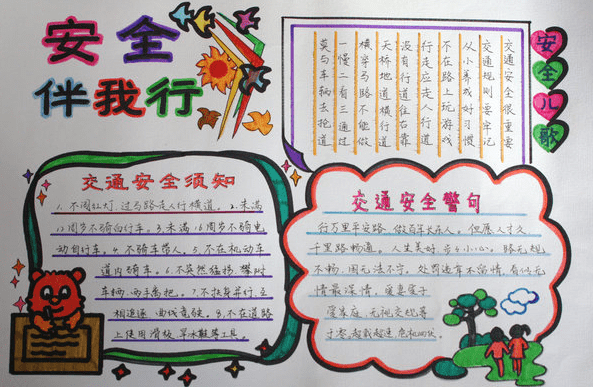 安全
伴我行
安全儿歌
交通安全很重要
交通规则要牢记
从小养成好习惯
不在路上玩游戏
行走应走人行道
没有行道往右靠
天桥地道横行道
横穿马路不能做
一慢二看三通过
莫与车辆去抢道
交通安全须知
1.不闯红灯,过马路走人行横道。2.未满
12周岁不骑自行车。3.未满16周岁不骑电
动自行车。4.不骑车带人。5.不在机动车
道内骑车。6.不突然猛拐,攀附
车辆,双手离把。7.不扶身并行,互
相追逐 曲线竞驶。8.不在道路
上使用滑板,旱冰鞋等工具。
交通安全警句
行万里平安路 做百年长乐人。但愿人长久
千里路畅通。人生美好 步步小心。路无规
不畅,国无法不宁。处罚违章不留情,看似无
情最深情。爱妻爱子
爱家庭,无视交规等
于零。超载超速 危机四伏